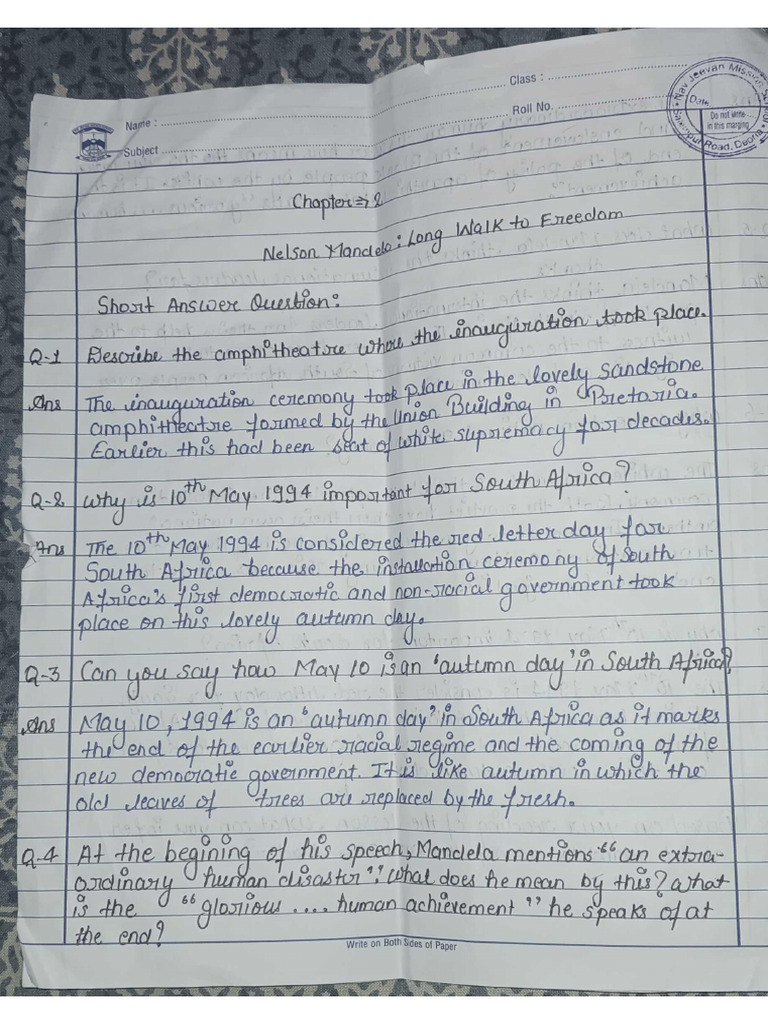 Name :
Class :
Roll No.
Subject
Nav Jeevan Mission
Date
Do not write
in this marging
Road, Deoria
Chapter ⇒ 2
Nelson Mandela : Long Walk to Freedom
Short Answer Question :
Q-1 Describe the amphitheatre where the inauguration took place.
Ans The inauguration ceremony took place in the lovely sandstone
amphitheatre formed by the Union Building in Pretoria.
Earlier this had been seat of white supremacy for decades.
Q-2 Why is 10th May 1994 important for South Africa?
Ans The 10th May 1994 is considered the red letter day for
South Africa because the installation ceremony of South
Africa's first democratic and non-racial government took
place on this lovely autumn day.
Q-3 Can you say how May 10 is an 'autumn day' in South Africa?
Ans May 10, 1994 is an 'autumn day' in South Africa as it marks
the end of the earlier racial regime and the coming of the
new democratic government. It is like autumn in which the
old leaves of trees are replaced by the fresh.
Q-4 At the begining of his speech, Mandela mentions "an extra-
ordinary human disaster". What does he mean by this? What
is the "glorious .... human achievement" he speaks of at
the end?
Write on Both Sides of Paper